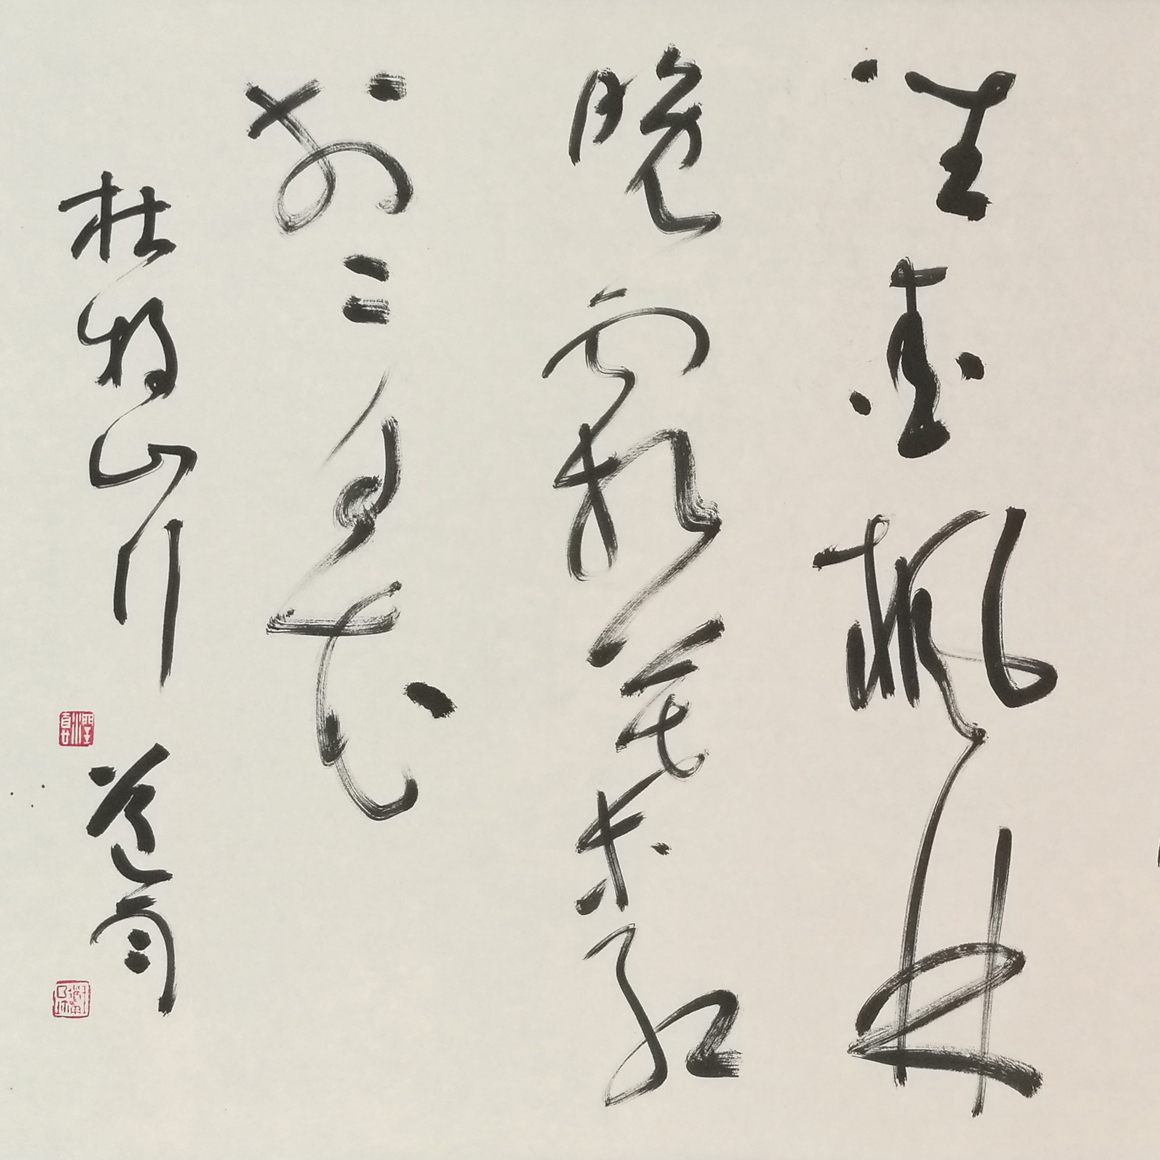 坐爱枫林
晚霜叶红
于二月花
杜牧山行
道甫